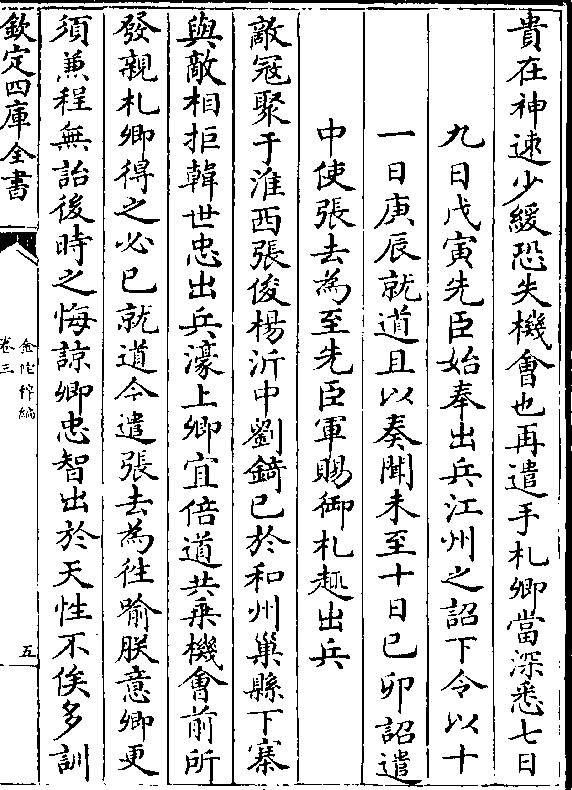 貴在神速少緩恐失機會也再遣手札卿當深悉七日
九日戊寅先臣始奉出兵江州之詔下令以十
一日庚辰就道且以奏聞未至十日己卯詔遣
中使張去為至先臣軍賜御札趣出兵
敵冦聚于淮西張俊楊沂中劉錡已於和州巢縣下寨
與敵相拒韓世忠出兵濠上卿宜倍道共乗機會前所
發親札卿得之必已就道今遣張去為徃喻朕意卿更
須兼程無詒後時之悔諒卿忠智出於天性不俟多訓
欽定四庫全書
金陀稡編
卷三
五